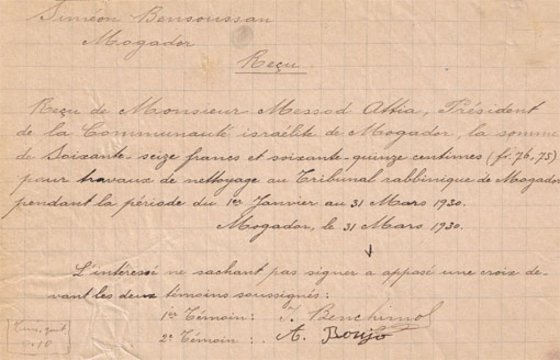 Siméon Bensoussan
Mogador
Reçu
Reçu de Monsieur Messod Attia, Président
de la Communauté israélite de Mogador, la somme
de Soixante-seize francs et soixante-quinze centimes (fr: 76,75)
pour travaux de nettoyage au Tribunal rabbinique de Mogador
pendant la période du 1er Janvier au 31 Mars 1930.
Mogador, le 31 Mars 1930.
L'intéressé ne sachant pas signer a apposé une croix de-
vant les deux témoins soussignés:
1er Témoin: J. Benchimol
2e Témoin: A. Bonjo